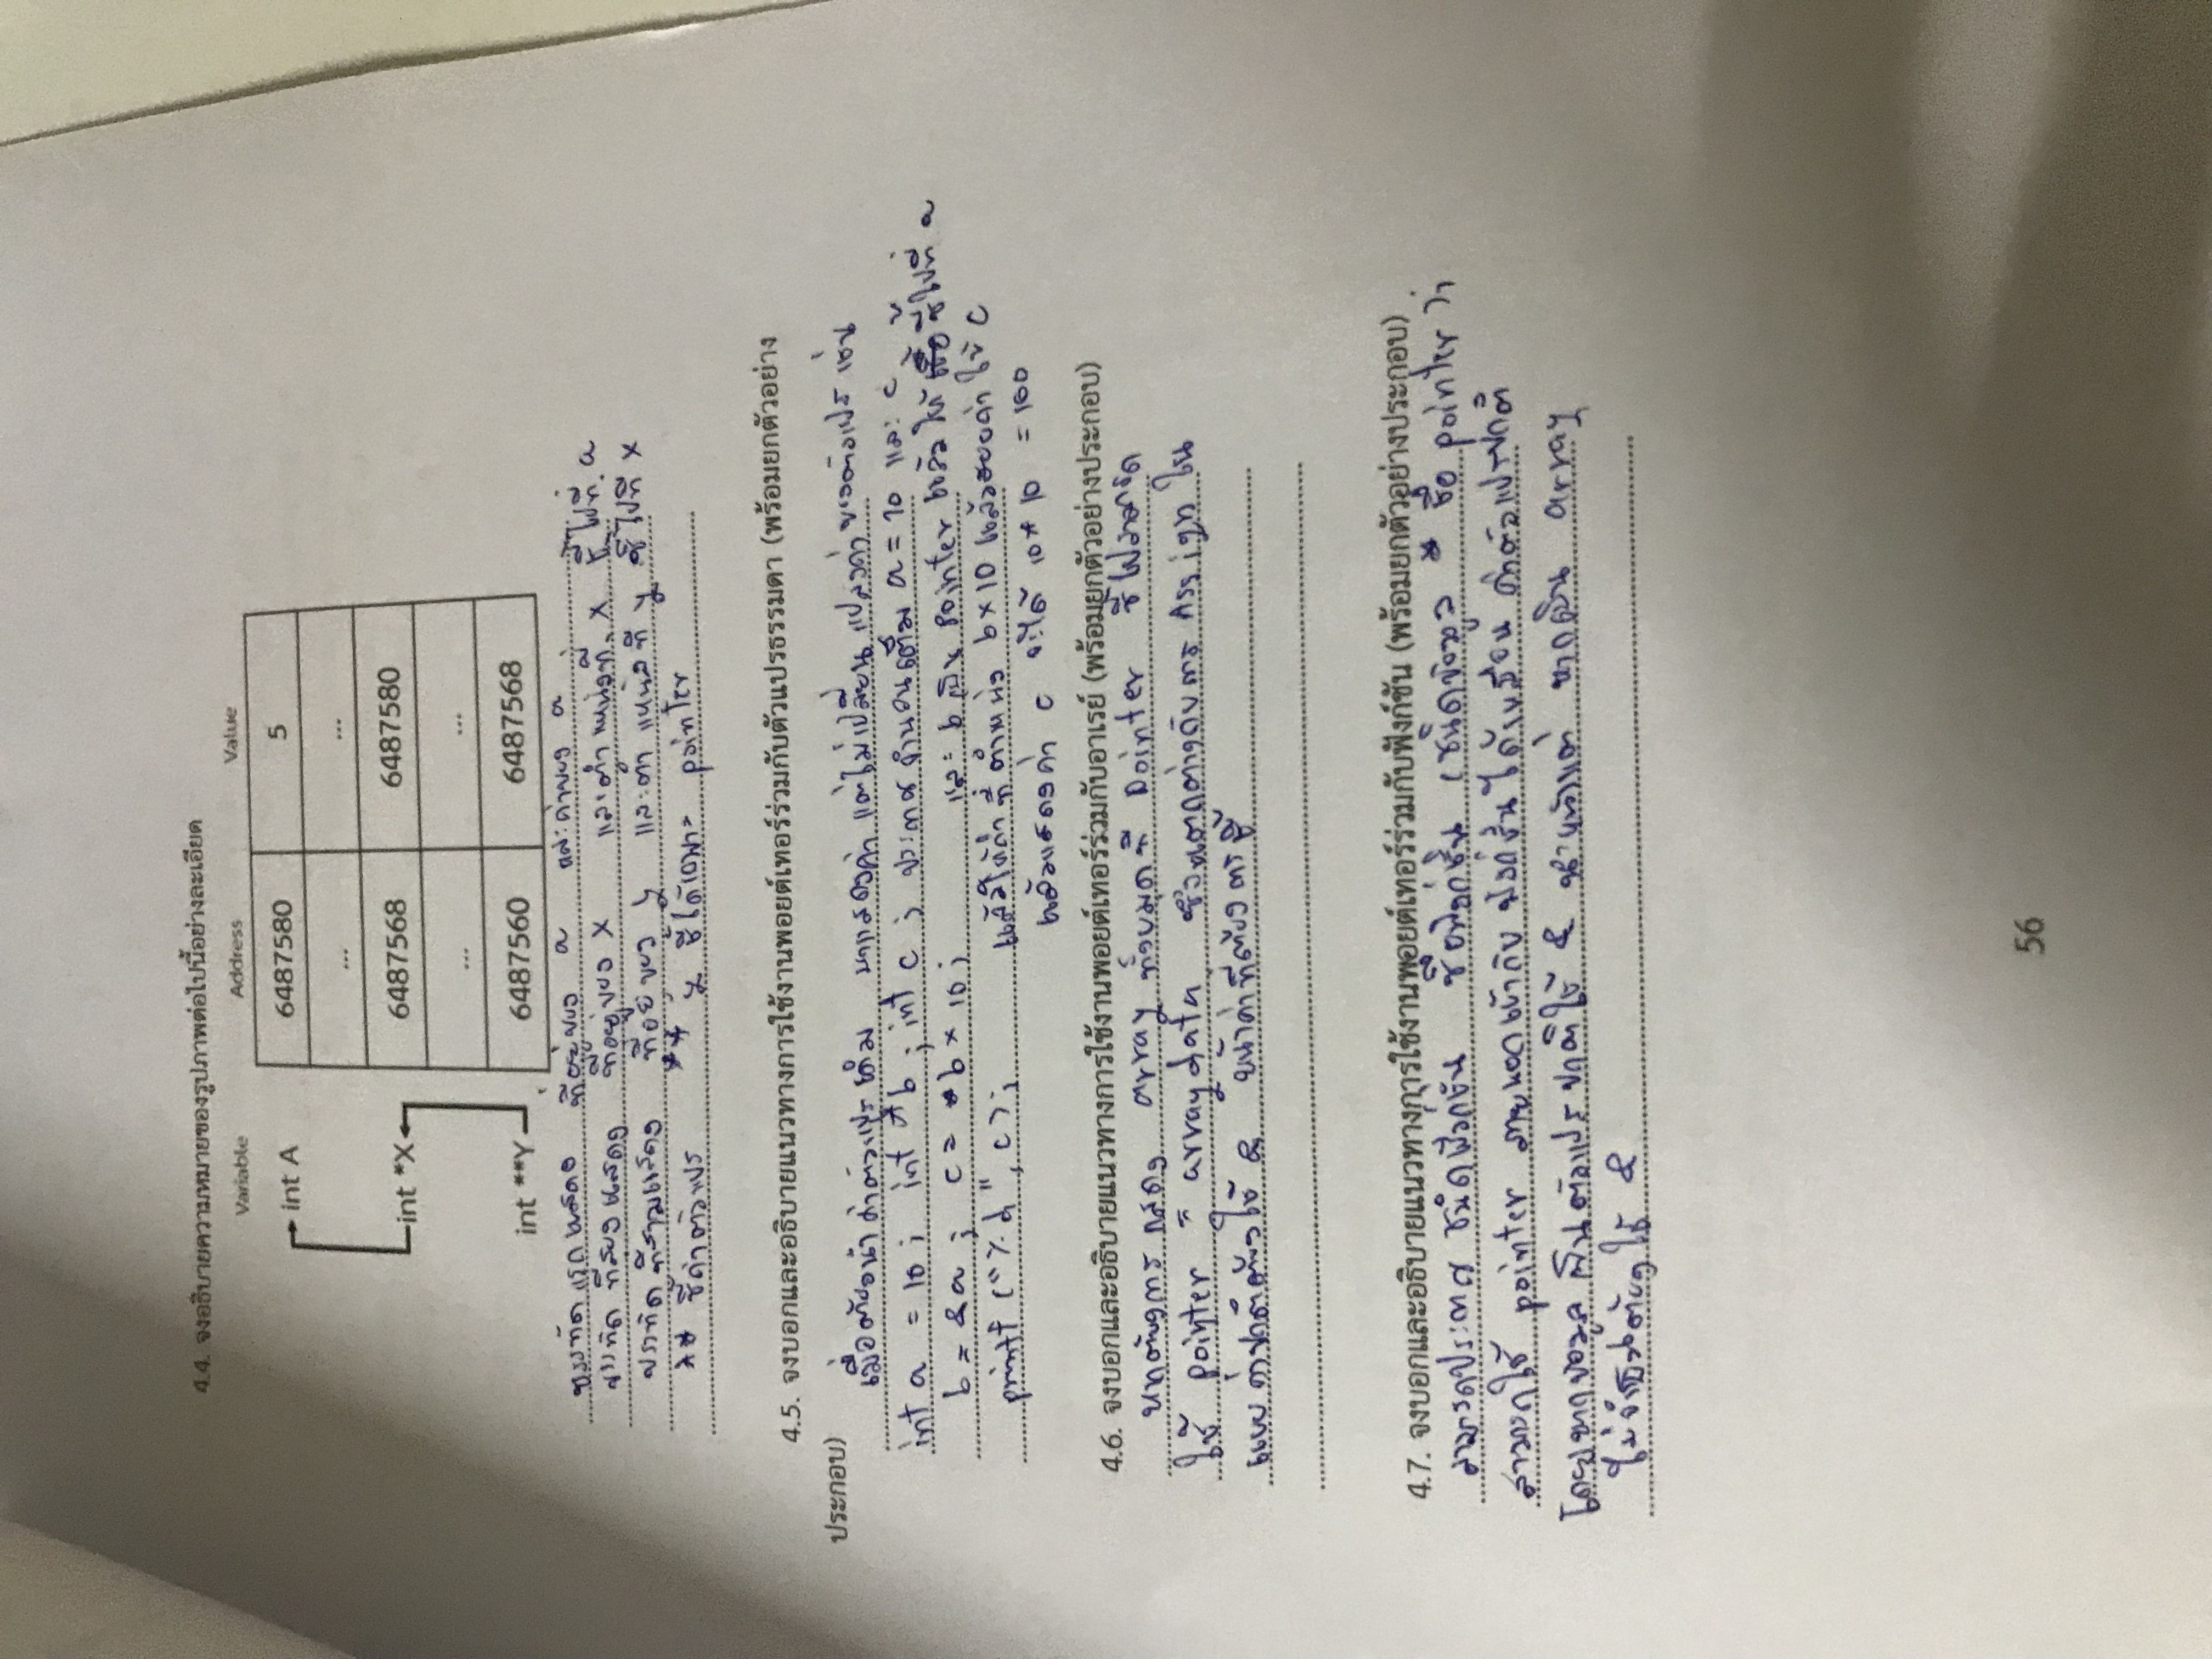 4.4. จงอธิบายความหมายของรูปภาพต่อไปนี้อย่างละเอียด
Variable Address Value
int A 6487580 5
... ...
int *X 6487568 6487580
... ...
int **Y 6487560 6487568
บรรทัดแรกแสดง ที่อยู่ของ a และค่าของ a
บรรทัด ที่สองแสดง ที่อยู่ของ x และตำแหน่งที่ x ชี้ไปที่ a
บรรทัดที่สามแสดง ที่อยู่ของ y และตำแหน่งที่ y ชี้ไปที่ x
** ชี้ค่าตัวแปร ** ชี้ได้เฉพาะ pointer
4.5. จงบอกและอธิบายแนวทางการใช้งานพอยต์เทอร์ร่วมกับตัวแปรธรรมดา (พร้อมยกตัวอย่าง
ประกอบ)
เมื่อต้องนำค่าตัวแปรเดิม มาแสดงค่า แต่ไม่เปลี่ยนแปลงค่าของตัวแปร เช่น
int a = 10 ; int *b ; int c ; ประกาศจำนวนเต็ม a = 10 และ c
b = &a ; c = *b * 10 ; และ b เป็น Pointer แล้วให้ ชี้ไปที่ a
printf ("%d", c); แล้วให้ค่าที่ตำแหน่ง b x 10 แล้ว ค่าให้ c
แล้วแสดงค่า c จะได้ 10 * 10 = 100
4.6. จงบอกและอธิบายแนวทางการใช้งานพอยต์เทอร์ร่วมกับอาเรย์ (พร้อมยกตัวอย่างประกอบ)
หากต้องการแสดง array ทั้งหมดที่ Pointer ชี้ไปสามารถ
ใช้ pointer = arraydata ซึ่งแตกต่างกับการ Assign ใน
แบบค่าปกติต้องใช้ & หน้าค่าที่ต้องการชี้
4.7. จงบอกและอธิบายแนวทางการใช้งานพอยต์เทอร์ร่วมกับฟังก์ชัน (พร้อมยกตัวอย่างประกอบ)
สามารถประกาศ ชนิดฟังก์ชัน ชื่อฟังก์ชัน (ชนิดข้อมูล * ชื่อ pointer );
สามารถใช้ pointer ภายนอกเข้ากับ ฟังก์ชันได้เหมือน ค่าตัวแปรปกติ
โดยหากข้อมูลเป็นตัวแปรปกติใช้ & นำหน้าแต่ หากเป็น array
ไม่จำเป็นต้องใช้ &
56